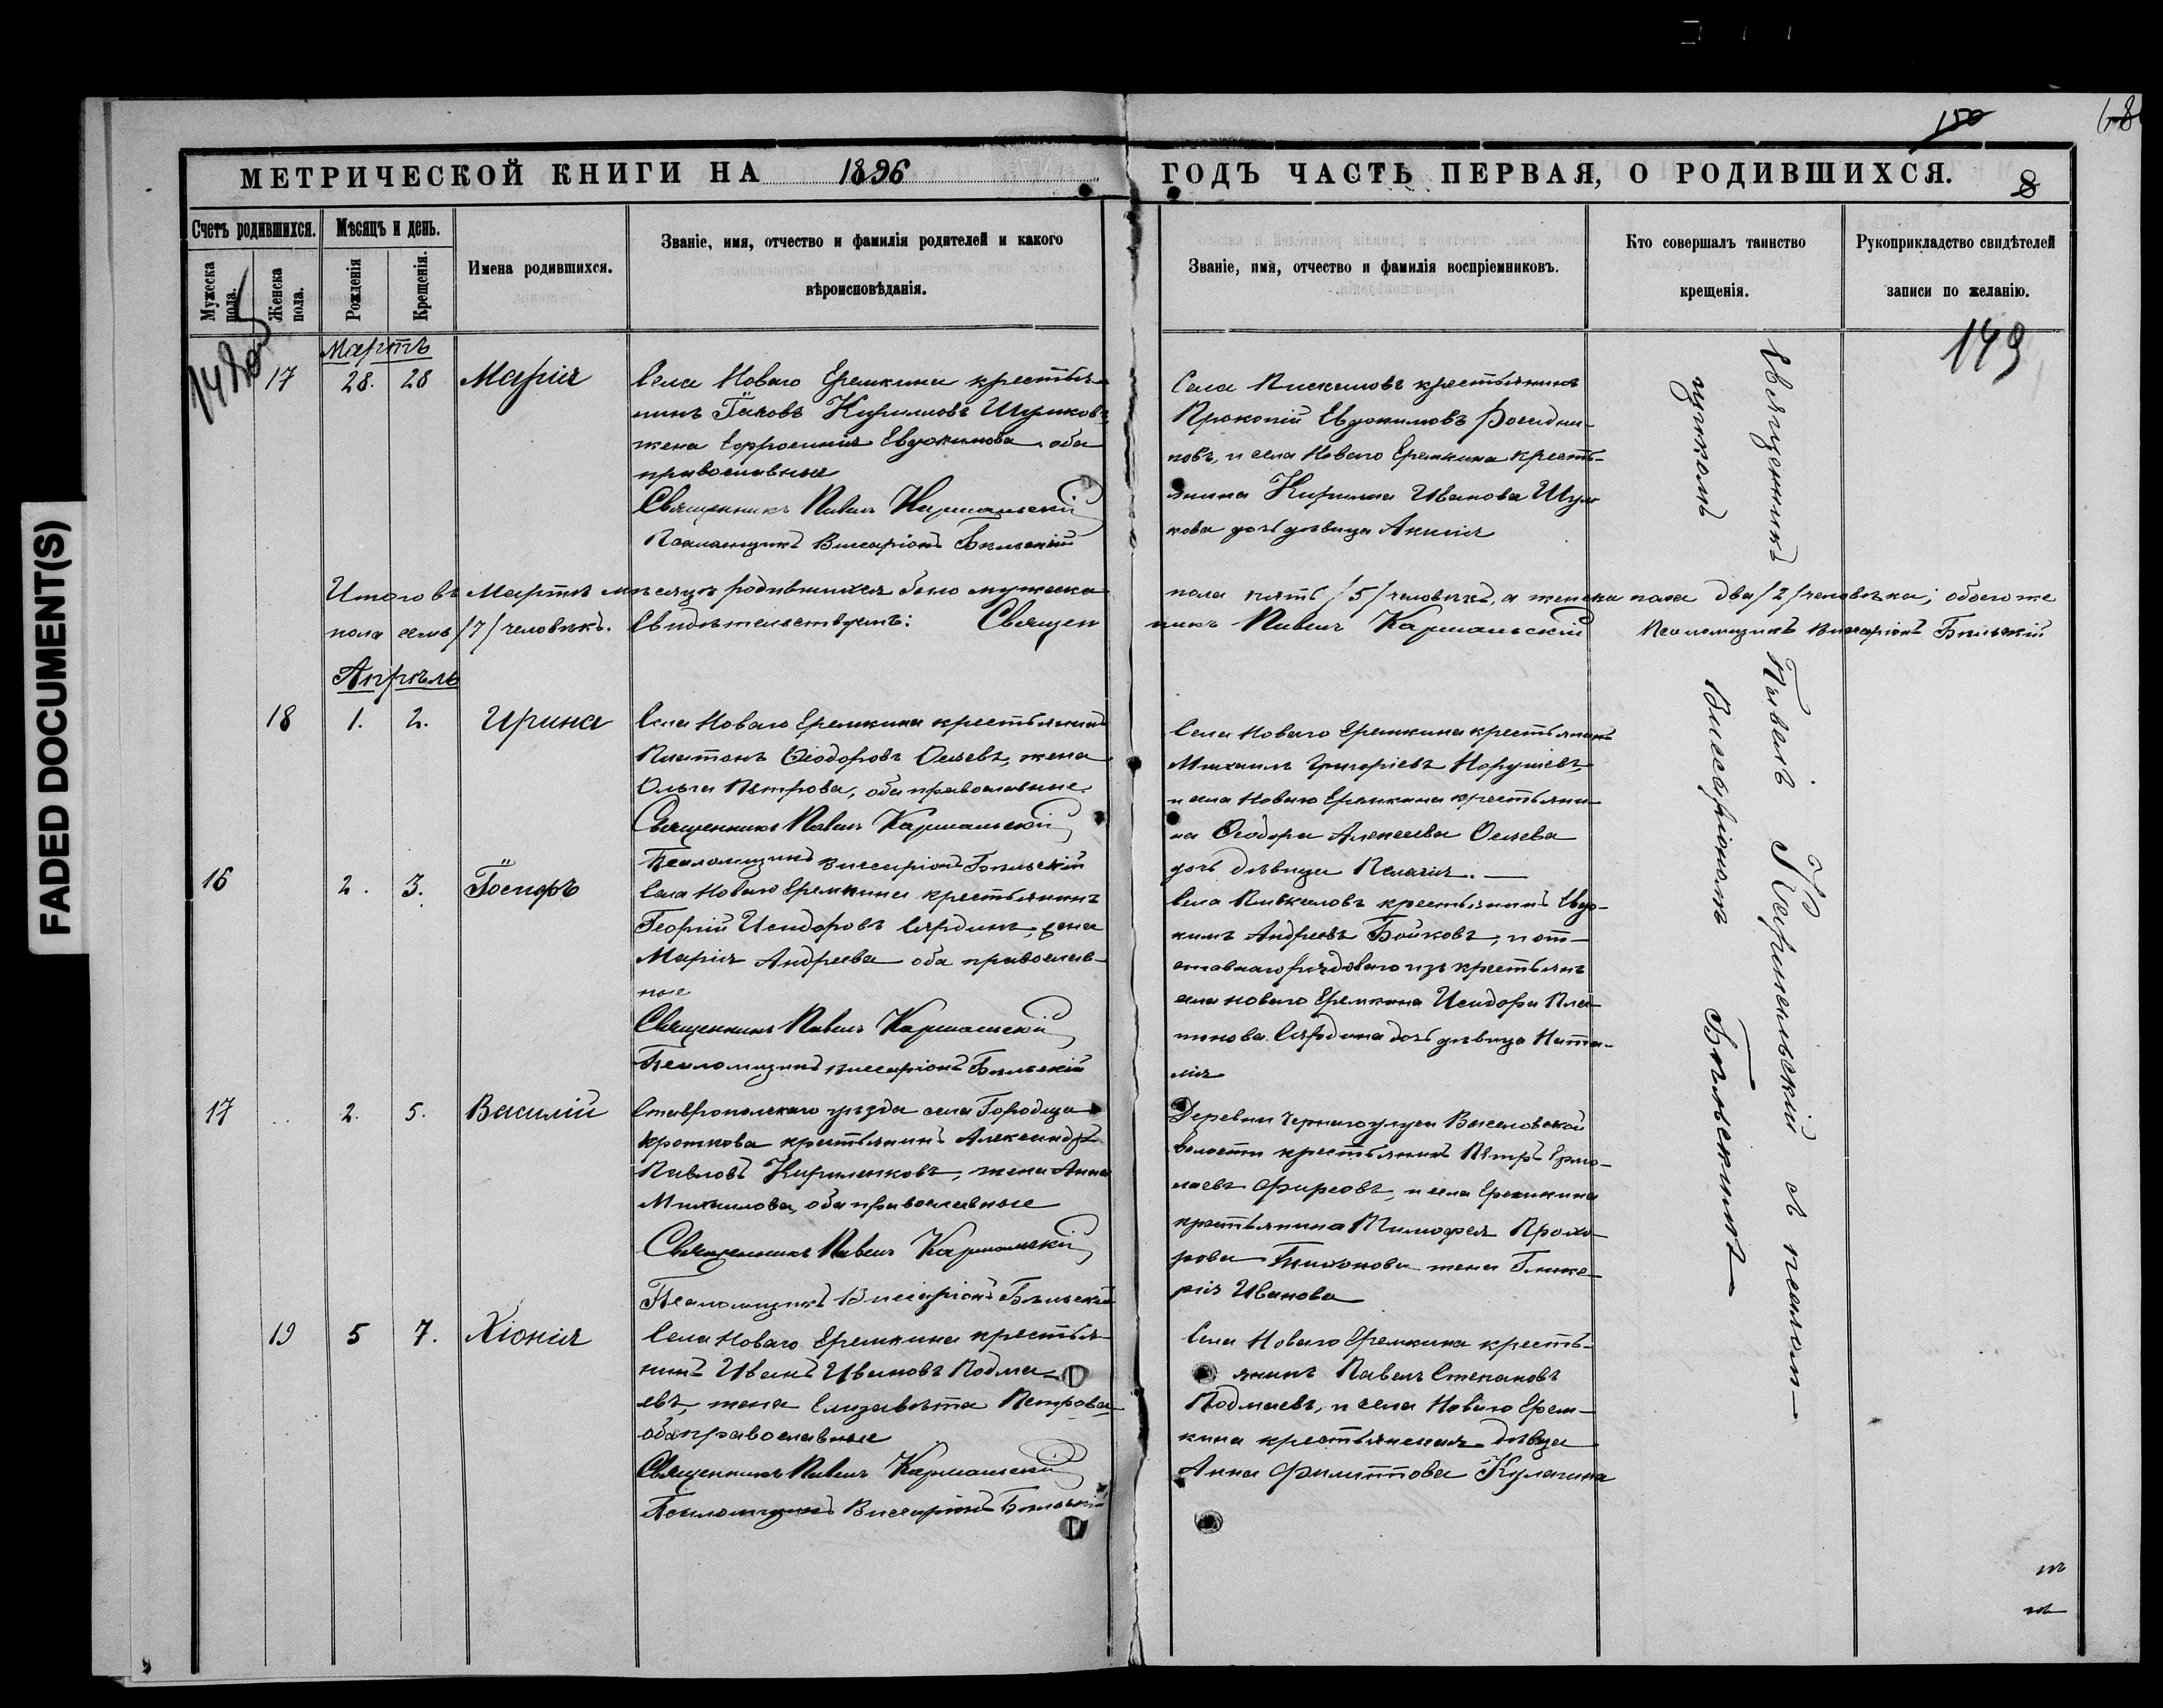 FADED DOCUMENT(S)
150
МЕТРИЧЕСКОЙ КНИГИ НА 1896 ГОДЪ ЧАСТЬ ПЕРВАЯ, О РОДИВШИХСЯ.
8
Счетъ родившихся.
Мужеска пола.
Женска пола.
Мѣсяцъ и день.
Рожденія
Крещенія.
Имена родившихся.
Званіе, имя, отчество и фамилія родителей и какого
вѣроисповѣданія.
Званіе, имя, отчество и фамилія воспріемниковъ.
Кто совершалъ таинство
крещенія.
Рукоприкладство свидѣтелей
записи по желанію.
149
Мартъ
17 28. 28 Марія
Села Новаго Еремкина крестья-
нинъ Іаковъ Кирилловъ Шулаковъ
жена Ефросинія Евдокимова оба
православные
Священникъ Павелъ Кармальскій
Псаломщикъ Виссаріонъ Бѣльскій
Села Пискаловъ крестьянинъ
Прокопій Евдокимовъ
новъ, и села Новаго Еремкина кресть-
янина Кирилла Иванова
кова дочь дѣвица Акилина
Итого въ Мартѣ мѣсяцѣ родившихся было мужеска пола пять /5/ человѣкъ, а женска пола два /2/ человѣка; обоего же
пола семь /7/ человѣкъ. Свидѣтельствуемъ: Священникъ Павелъ Кармальскій Псаломщикъ Виссаріонъ Бѣльскій
Апрѣль
18 1. 2. Ирина
Села Новаго Еремкина крестьянинъ
Платонъ Ѳеодоровъ Осяевъ, жена
Ольга Петрова, оба православные.
Священникъ Павелъ Кармальскій
Псаломщикъ Виссаріонъ Бѣльскій
Села Новаго Еремкина крестьянинъ
Михаилъ Григорьевъ Норушевъ,
и села Новаго Еремкина крестьяни-
на Ѳеодора Алексеева Осяева
дочь дѣвица Пелагія.
16 2. 3. Іосифъ
Села Новаго Еремкина крестьянинъ
Георгій Исидоровъ Сярдинъ, жена
Марія Андреева оба православ-
ные
Священникъ Павелъ Кармальскій
Псаломщикъ Виссаріонъ Бѣльскій
Села Пискаловъ крестьянинъ Евдо-
кимъ Андреевъ Бойковъ, и от-
ставнаго рядоваго изъ крестьянъ
села Новаго Еремкина Исидора Пла-
тонова Сярдина дочь дѣвица Ната-
лія
17 2. 5. Василій
Ставропольскаго уѣзда села Городища
Кроткова крестьянинъ Александръ
Павловъ Кириленковъ, жена Анна
Михаилова, оба православные
Священникъ Павелъ Кармальскій
Псаломщикъ Виссаріонъ Бѣльскій
Деревни
волости крестьянинъ Петръ Ермо-
лаевъ Фирсовъ, и села Еремкина
крестьянина Тимофея Прохо-
рова Тихонова жена Глике-
рія Иванова
19 5 7. Хіонія
Села Новаго Еремкина крестья-
нинъ Иванъ Ивановъ Подма-
евъ, жена Елизавѣта Петрова
оба православные
Священникъ Павелъ Кармальскій
Псаломщикъ Виссаріонъ Бѣльскій
Села Новаго Еремкина кресть-
янинъ Павелъ Степановъ
Подмаевъ, и села Новаго Ерем-
кина крестьянская дѣвица
Анна Филиппова Кулагина
Священникъ Павелъ Кармальскій съ псалом-
щикомъ Виссаріономъ Бѣльскимъ